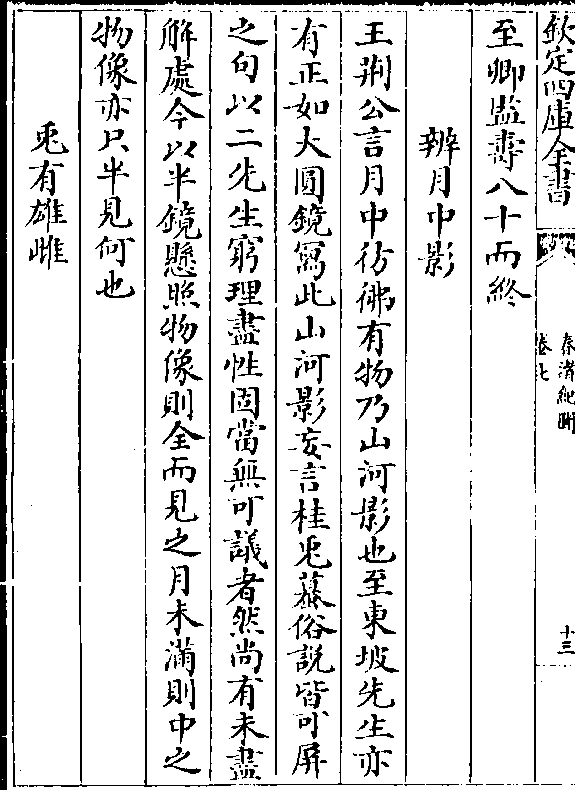 欽定四庫全書
春渚紀聞
卷七
十三
至卿監壽八十而終
辨月中影
王荆公言月中彷彿有物乃山河影也至東坡先生亦
有正如大圓鏡寫此山河影妄言桂兎蟇俗說皆可屏
之句以二先生窮理盡性固當無可議者然尚有未盡
解處今以半鏡懸照物像則全而見之月未滿則中之
物像亦只半見何也
兎有雄雌